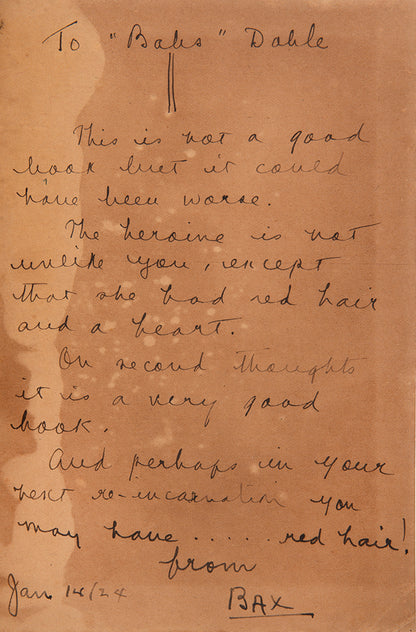 To "Babs" Dahle
This is not a good
book but it could
have been worse.
The heroine is not
unlike you, except
that she had red hair
and a heart.
On second thoughts
it is a very good
book.
And perhaps in your
next re-incarnation you
may have ..... red hair!
from
Jan 14/24
BAX